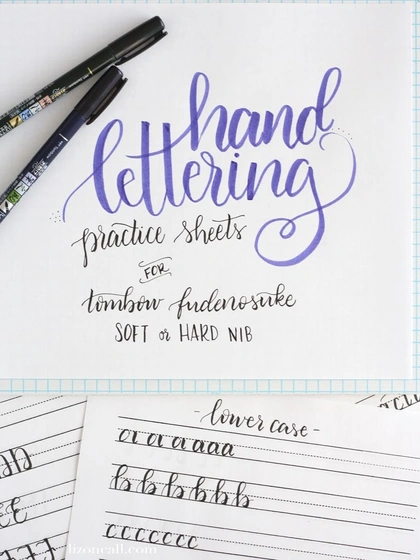 hand
lettering
practice sheets
FOR
tombow fudenosuke
SOFT or HARD NIB
-lower case-
a a a a a a a
b b b b b b b
c c c c c c c
lizoncall.com